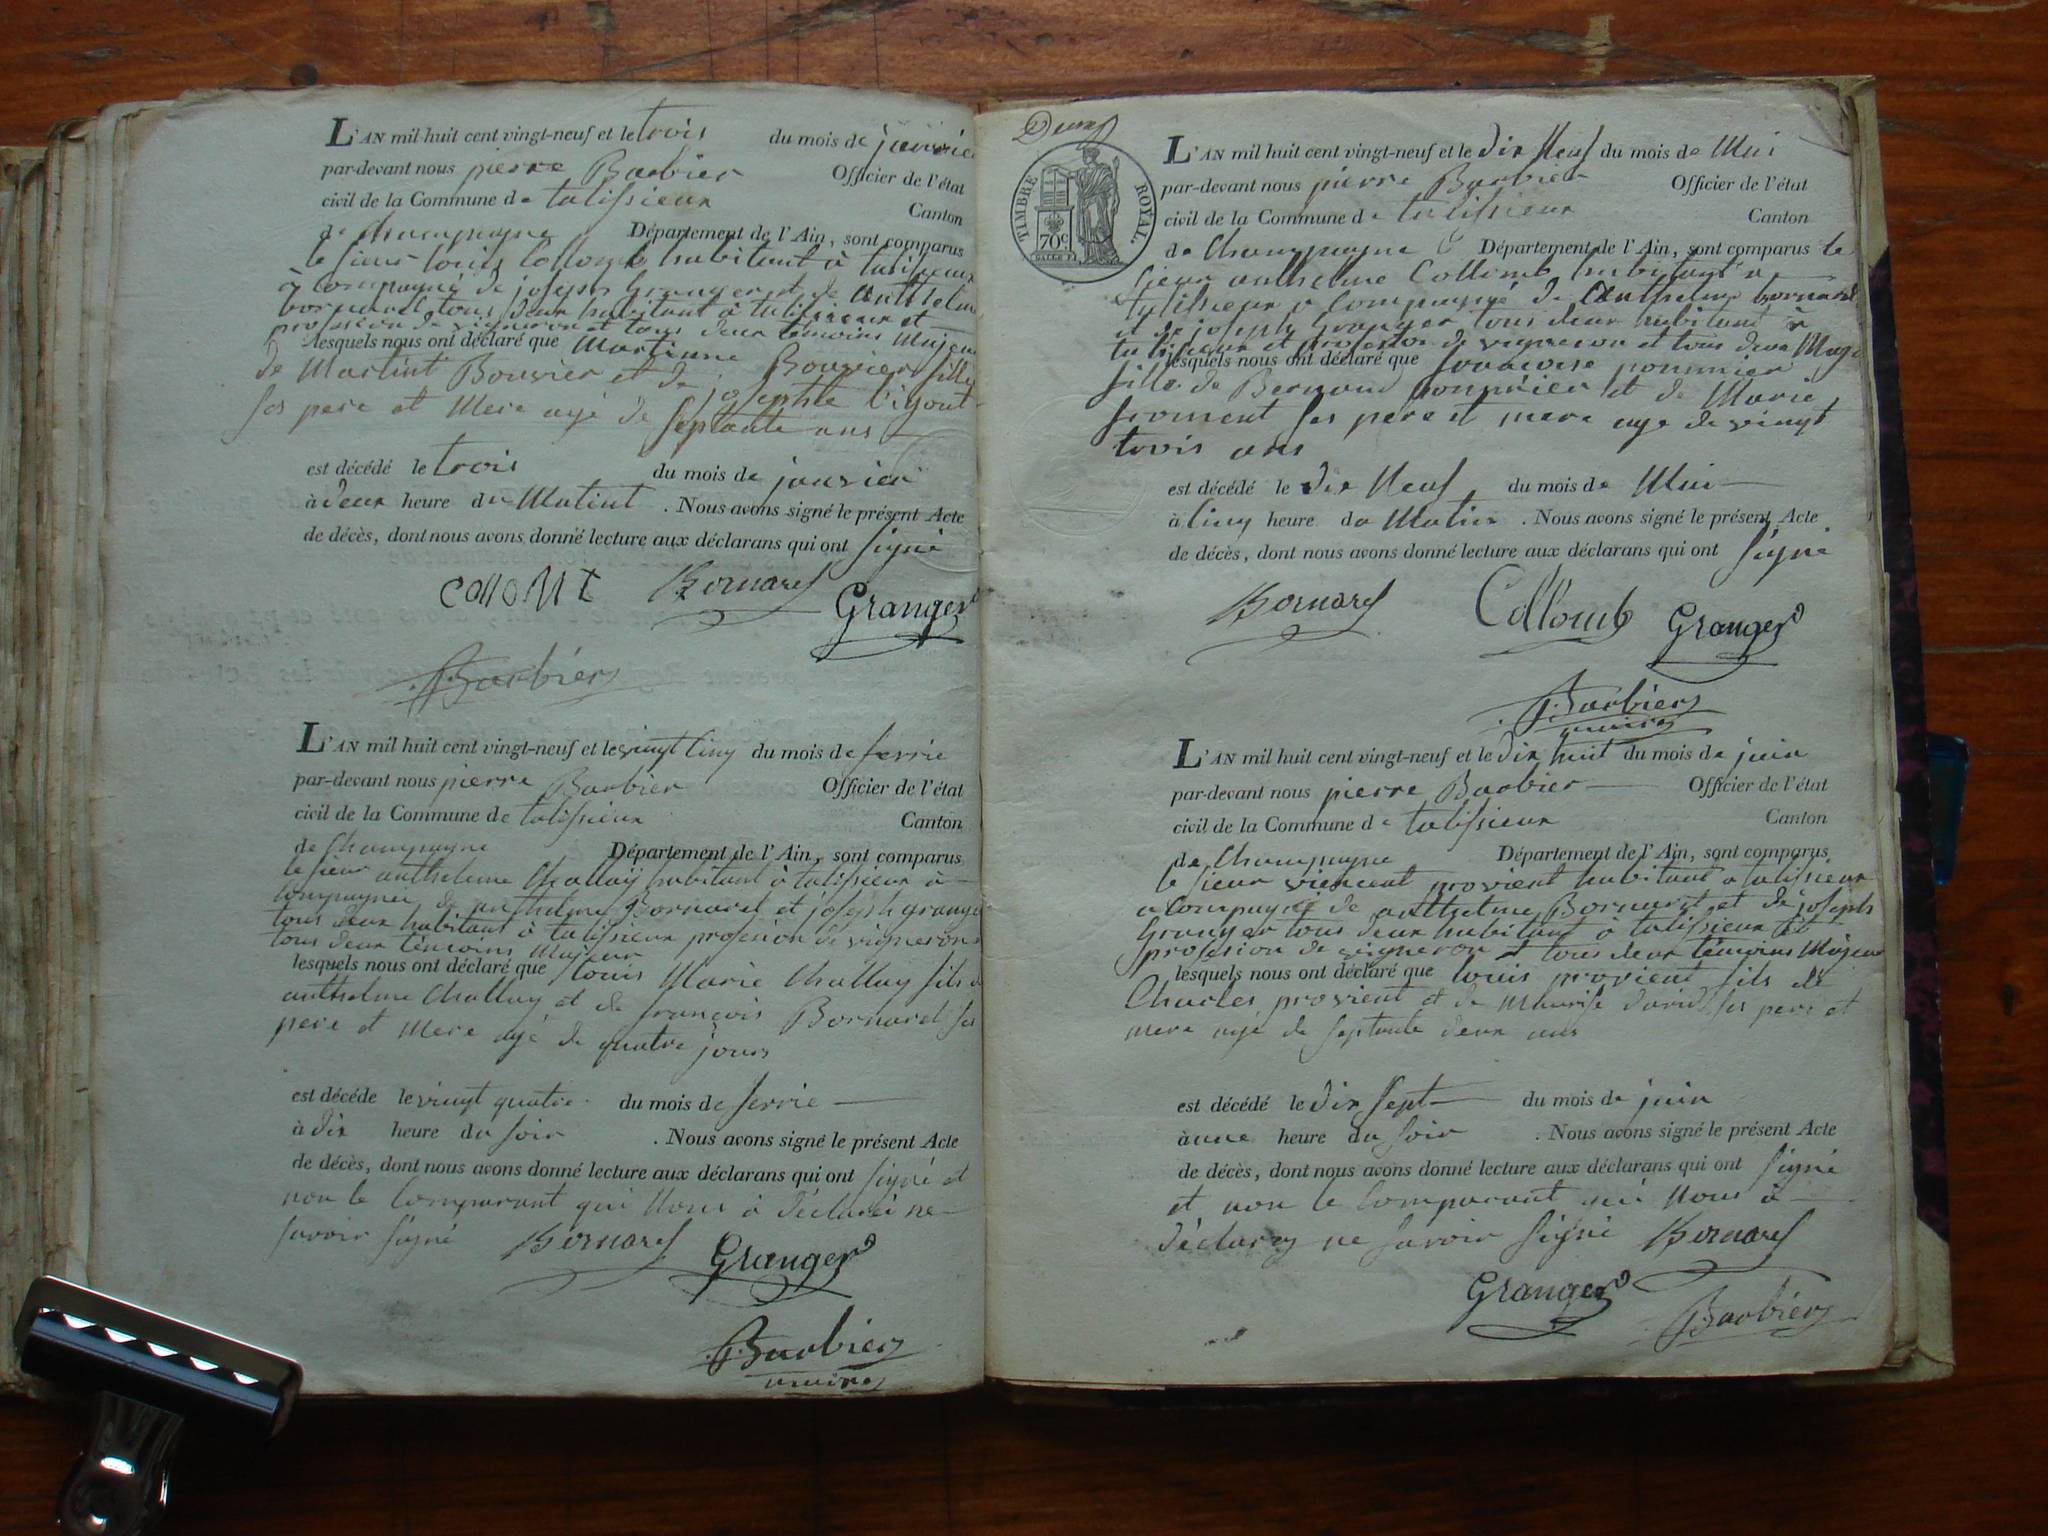 L'AN mil huit cent vingt-neuf et le trois du mois de janvie
par-devant nous pierre Barbier Officier de l'état
civil de la Commune de talissieux Canton
de Champagne Département de l'Ain, sont comparus
le sieur louis Collomb habitant à talissieux
à compagné de joseph Granger et de Anthelme
bornard tous deux habitant à talissieux et
profession de vigneron et tous deux témoins Majeur
lesquels nous ont déclaré que Martinne Bouvier fille
de Martint Bouvier et de josephte
ses pere et Mere agé de septante ans
est décédé le trois du mois de janvier
à deux heure du Matint . Nous avons signé le présent Acte
de décès, dont nous avons donné lecture aux déclarans qui ont signé
Bornard Granger
Barbier
L'AN mil huit cent vingt-neuf et le vingt cinq du mois de ferrie
par-devant nous pierre Barbier Officier de l'état
civil de la Commune de talissieux Canton
de Champagne Département de l'Ain, sont comparus
le sieur anthelme Challay habitant à talissieux à
compagnée de anthelme Bornard et joseph grange
tous deux habitant à talissieux profession de vigneron
tous deux témoins Majeur
lesquels nous ont déclaré que louis Marie Challay fils d
anthelme Challay et de françois Bornard ses
pere et Mere agé de quatre jours
est décédé le vingt quatre du mois de ferrie
à dix heure du soir . Nous avons signé le présent Acte
de décès, dont nous avons donné lecture aux déclarans qui ont signé et
non le Comparant qui Nous à déclaré ne
savoir signé Bornard Granger
Barbier
maire
Deux
TIMBRE ROYAL
70c
L'AN mil huit cent vingt-neuf et le dix Neuf du mois de Mai
par-devant nous pierre Barbier Officier de l'état
civil de la Commune de talissieux Canton
de Champagne Département de l'Ain, sont comparus le
sieur anthelme Collomb habitant a
talissieux a Compagné de Anthelme bornard
et de joseph Granger tous deux habitant à
talissieux et profession de vigneron et tous deux Maje
lesquels nous ont déclaré que françoise pommier
fille de Bernard pommier et de Marie
froment ses pere et mere age de vingt
trois ans
est décédé le dix Neuf du mois de Mai
à Cinq heure du Matin . Nous avons signé le présent Acte
de décès, dont nous avons donné lecture aux déclarans qui ont signé
Bornard Collomb Granger
Barbier
maire
L'AN mil huit cent vingt-neuf et le dix huit du mois de juin
par-devant nous pierre Barbier Officier de l'état
civil de la Commune de talissieux Canton
de Champagne Département de l'Ain, sont comparus
le sieur viencent provient habitant a talissieux
a Compagné de anthelme Bornard et de joseph
Granger tous deux habitant à talissieux et
profession de vigneron et tous deux témoins Majeur
lesquels nous ont déclaré que louis provient fils de
Charles provient et de Maurise david ses pere et
mere agé de septante deux ans
est décédé le dix sept du mois de juin
à une heure du soir . Nous avons signé le présent Acte
de décès, dont nous avons donné lecture aux déclarans qui ont signé
et non le Comparant qui Nous à
déclarez ne savoir signé Bornard
Granger Barbier